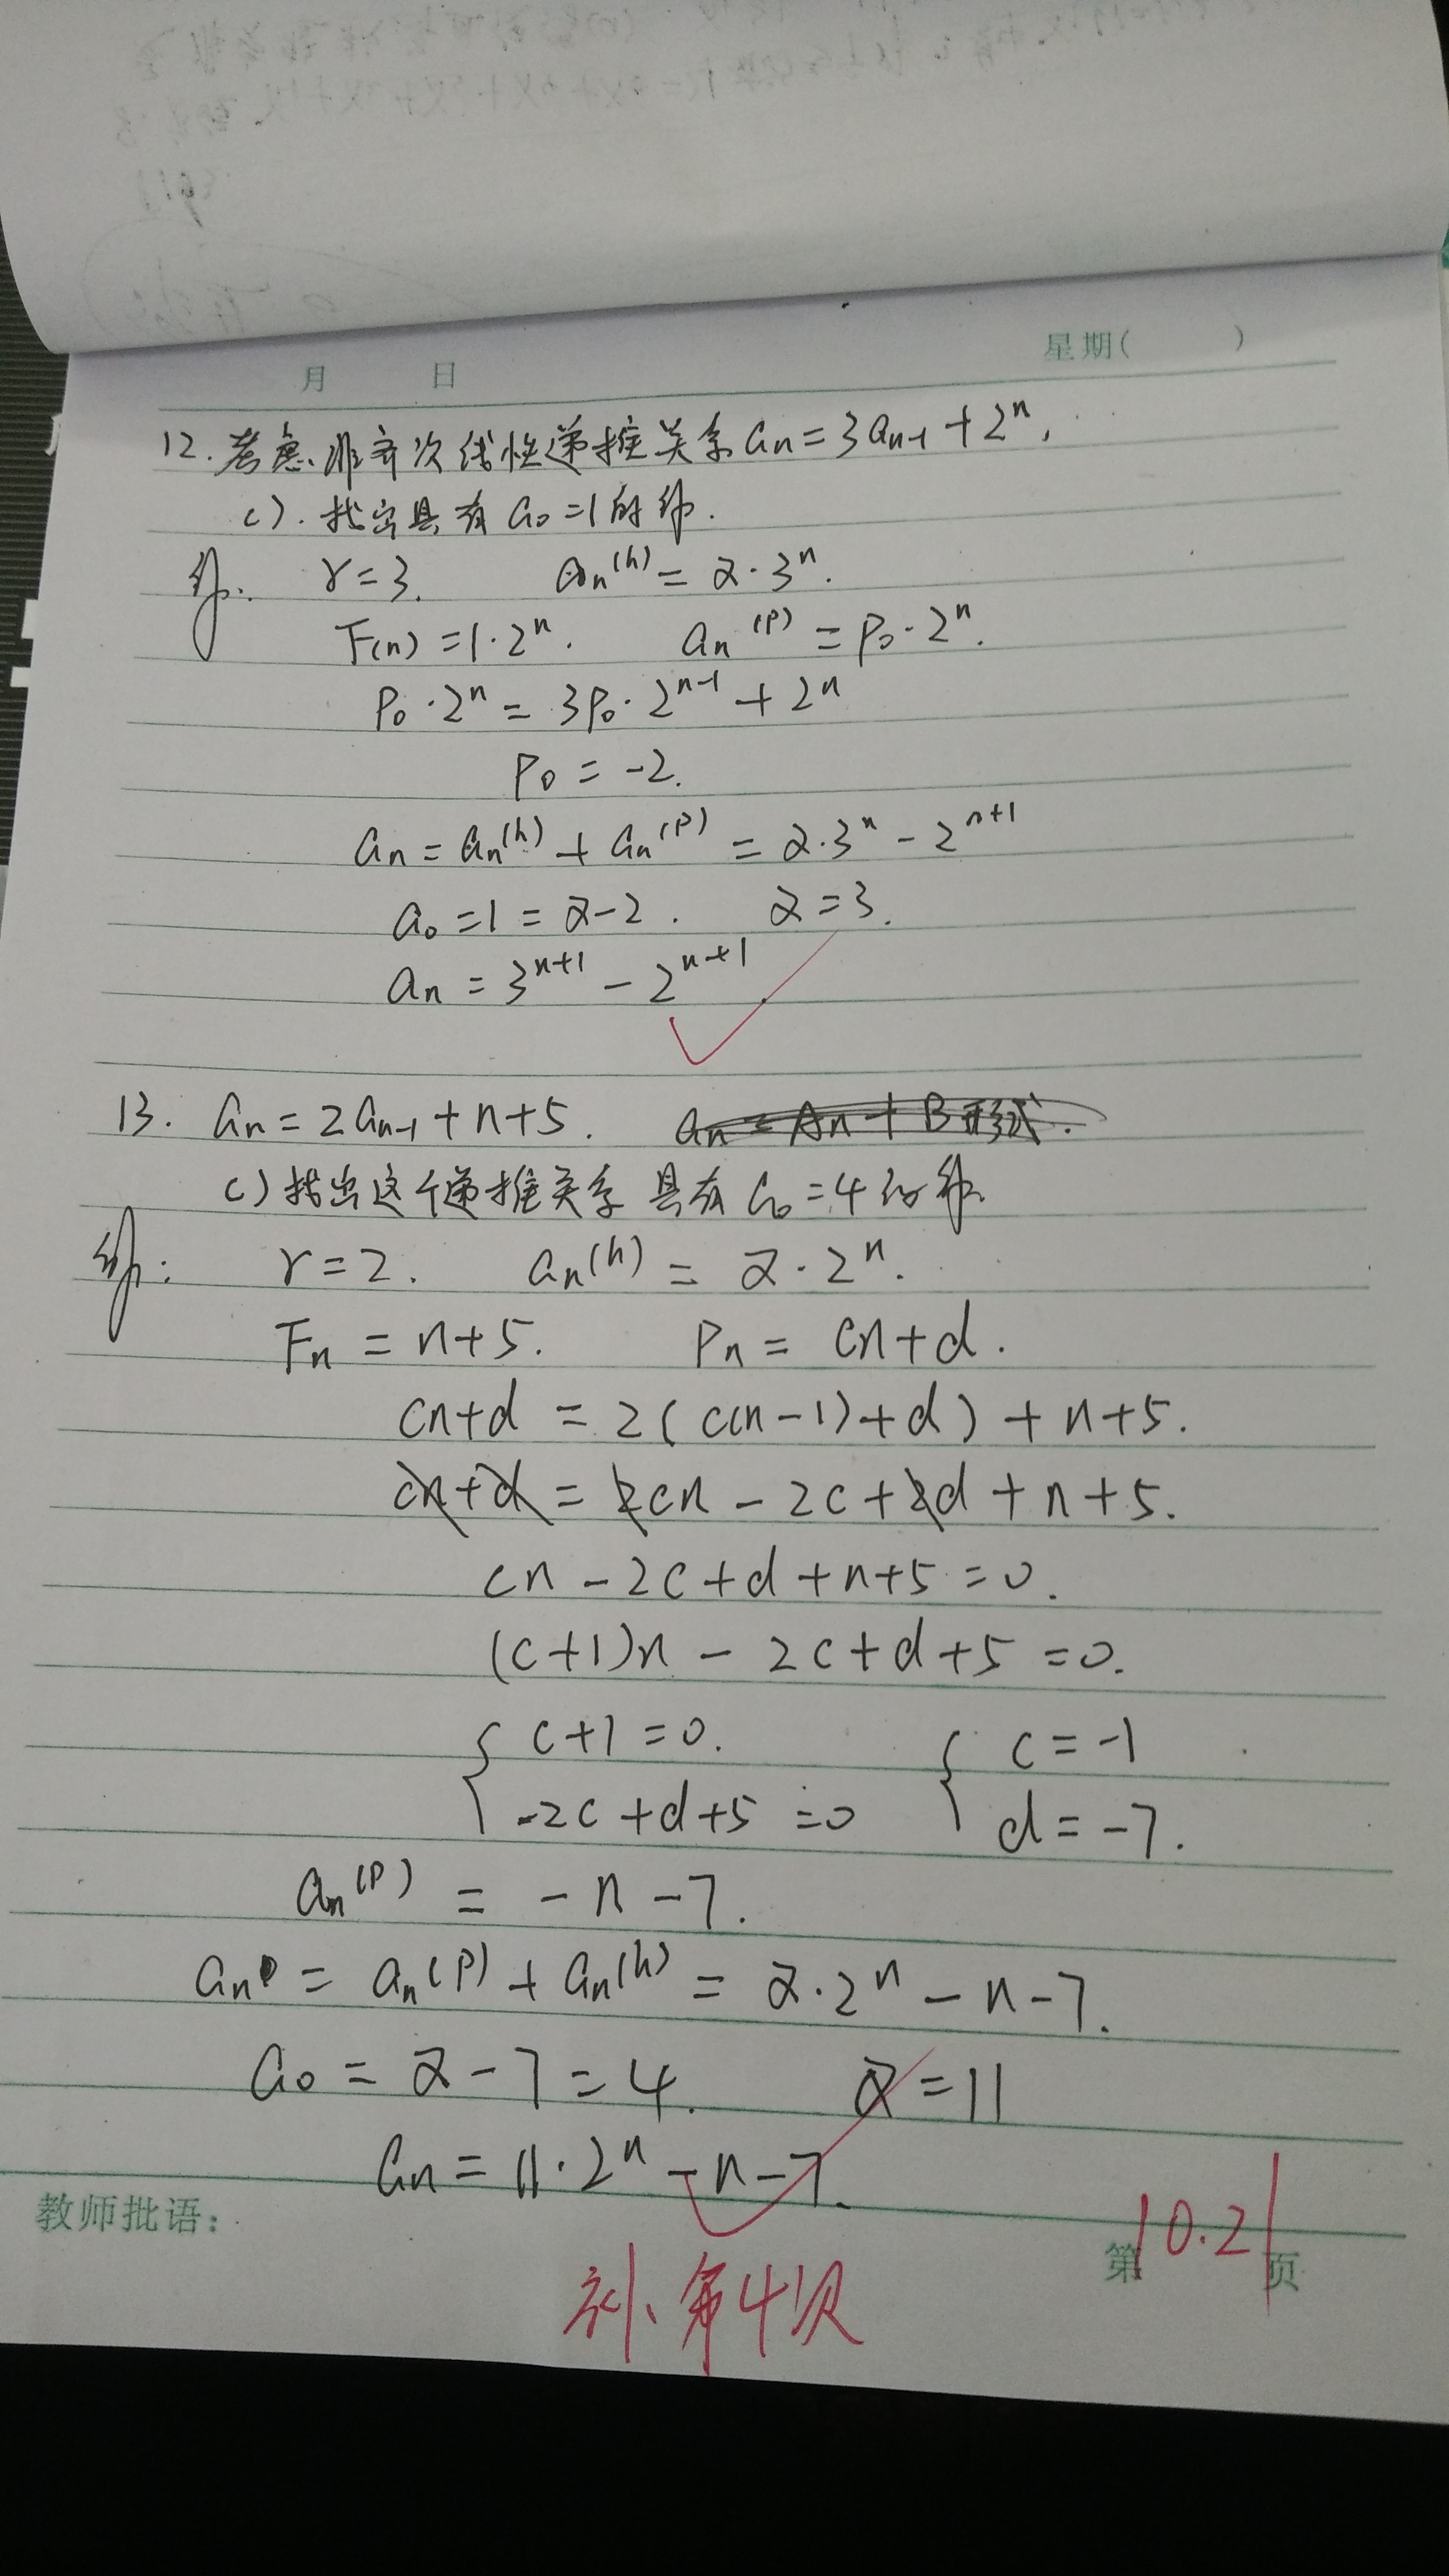 月 日 星期( )
12.考虑非齐次线性递推关系 aₙ=3aₙ₋₁+2ⁿ,
c).找出具有 a₀=1的解.
解: r=3. aₙ⁽ʰ⁾=α·3ⁿ.
F(n)=1·2ⁿ. aₙ⁽ᵖ⁾=P₀·2ⁿ.
P₀·2ⁿ=3P₀·2ⁿ⁻¹+2ⁿ
P₀=-2.
aₙ=aₙ⁽ʰ⁾+aₙ⁽ᵖ⁾=α·3ⁿ-2ⁿ⁺¹
a₀=1=α-2. α=3.
aₙ=3ⁿ⁺¹-2ⁿ⁺¹
13. aₙ=2aₙ₋₁+n+5. aₙ=An+B形式.
c)找出这个递推关系具有a₀=4的解
解: r=2. aₙ⁽ʰ⁾=α·2ⁿ.
Fₙ=n+5. Pₙ=cn+d.
cn+d=2(c(n-1)+d)+n+5.
cn+d=2cn-2c+2d+n+5.
cn-2c+d+n+5=0.
(c+1)n-2c+d+5=0.
{c+1=0. {c=-1
-2c+d+5=0 d=-7.
aₙ⁽ᵖ⁾=-n-7.
aₙ=aₙ⁽ᵖ⁾+aₙ⁽ʰ⁾=α·2ⁿ-n-7.
a₀=α-7=4. α=11
aₙ=11·2ⁿ-n-7.
教师批语:
第 页
10.21
补、第4次